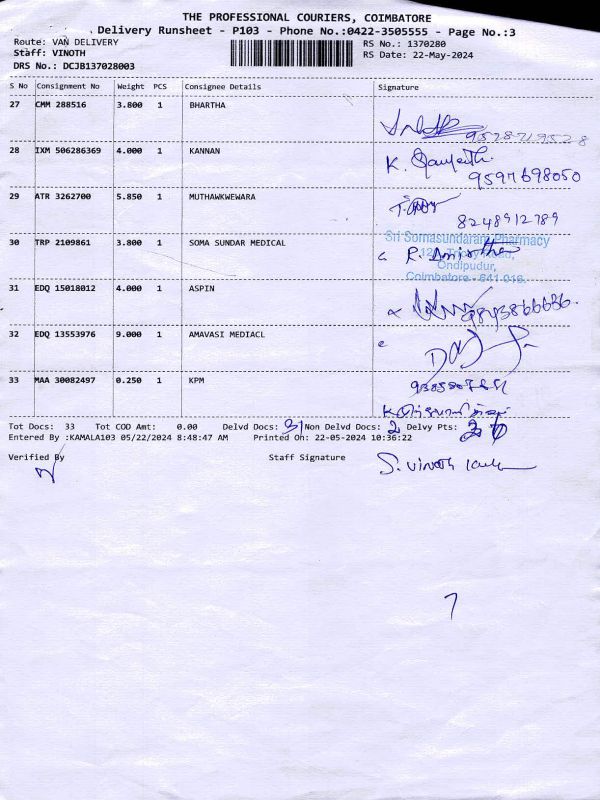 THE PROFESSIONAL COURIERS, COIMBATORE
Delivery Runsheet - P103 - Phone No.:0422-3505555 - Page No.:3
Route: VAN DELIVERY RS No.: 1370280
Staff: VINOTH RS Date: 22-May-2024
DRS No.: DCJB137028003
S No Consignment No Weight PCS Consignee Details Signature
27 CMM 288516 3.800 1 BHARTHA
9578719528
28 IXM 506286369 4.000 1 KANNAN K.
9597698050
29 ATR 3262700 5.850 1 MUTHAWKWEWARA
8248912789
30 TRP 2109861 3.800 1 SOMA SUNDAR MEDICAL Sri Somasundaram Pharmacy
Ondipudur,
Coimbatore - 641 016.
31 EDQ 15018012 4.000 1 ASPIN
9843866686.
32 EDQ 13553976 9.000 1 AMAVASI MEDIACL
33 MAA 30082497 0.250 1 KPM
Tot Docs: 33 Tot COD Amt: 0.00 Delvd Docs: 31 Non Delvd Docs: 2 Delvy Pts:
Entered By :KAMALA103 05/22/2024 8:48:47 AM Printed On: 22-05-2024 10:36:22
Verified By Staff Signature S. Vinoth
7